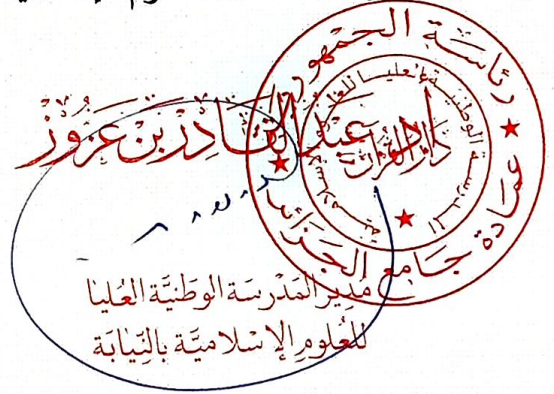 رئاسة الجمهورية
عمادة جامع الجزائر
المدرسة الوطنية العليا للعلوم الإسلامية
دار القرآن
أ.د. عبد القادر بن عزوز
مدير المدرسة الوطنيَّة العُليا
للعُلوم الإسْلاميَّة بالنِّيابَة